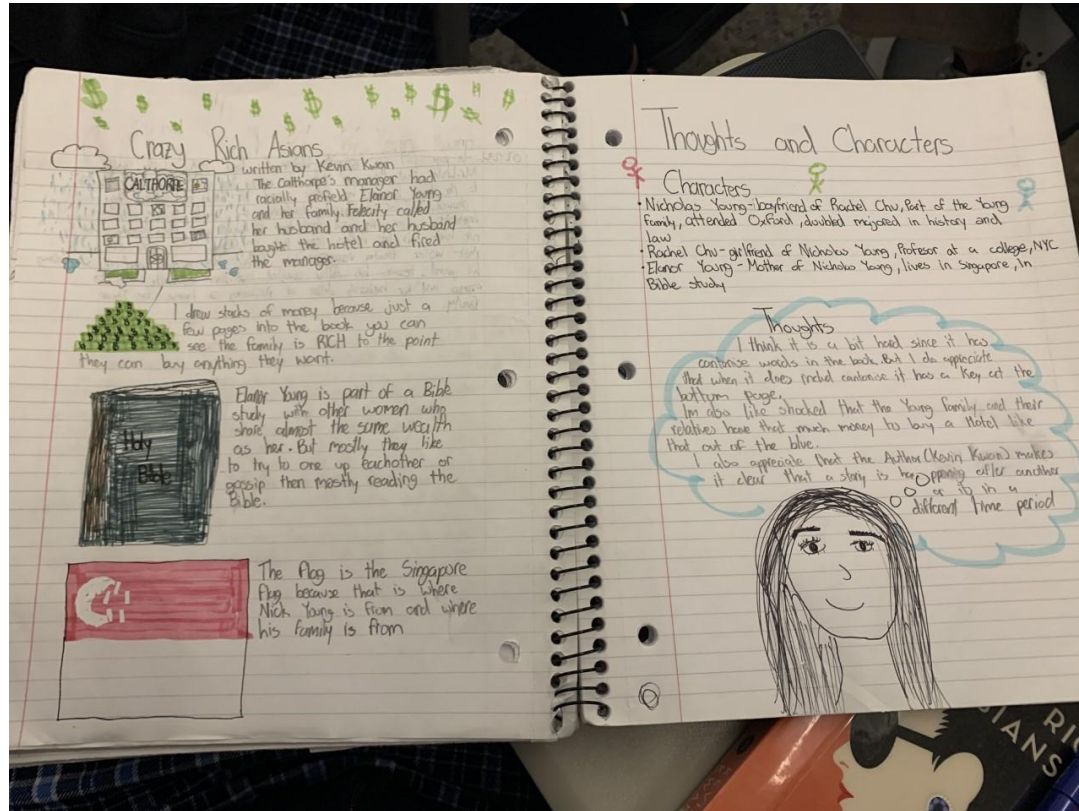 Crazy Rich Asians
written by Kevin Kwan
CALTHORPE
The Calthorpe's manager had
racially profield Elanor Young
and her family. Felecity called
her husband and her husband
bought the hotel and fired
the manager.
I drew stacks of money because just a
few pages into the book you can
see the family is RICH to the point
they can buy anything they want.
Holy
Bible
Elanor Young is part of a Bible
study with other women who
share almost the same wealth
as her. But mostly they like
to try to one up eachother or
gossip then mostly reading the
Bible.
The flag is the Singapore
flag because that is where
Nick Young is from and where
his family is from
Thoughts and Characters
Characters
• Nicholas Young-boyfriend of Rachel Chu, Part of the Young
Family, attended Oxford, doubled majored in history and
law
• Rachel Chu-girlfriend of Nicholas Young, Profesor at a college, NYC
• Elanor Young-Mother of Nicholas Young, lives in Singapore, In
Bible study
Thoughts
I think it is a bit hard since it has
cantonise words in the book. But I do appreciate
that when it does includ cantonise it has a key at the
bottom page.
Im also like shocked that the Young family and their
relatives have that much money to buy a Hotel like
that out of the blue.
I also appreciate that the Author (Kevin Kwan) makes
it clear that a story is happening after another
or is in a
different time period
RIC
SIANS